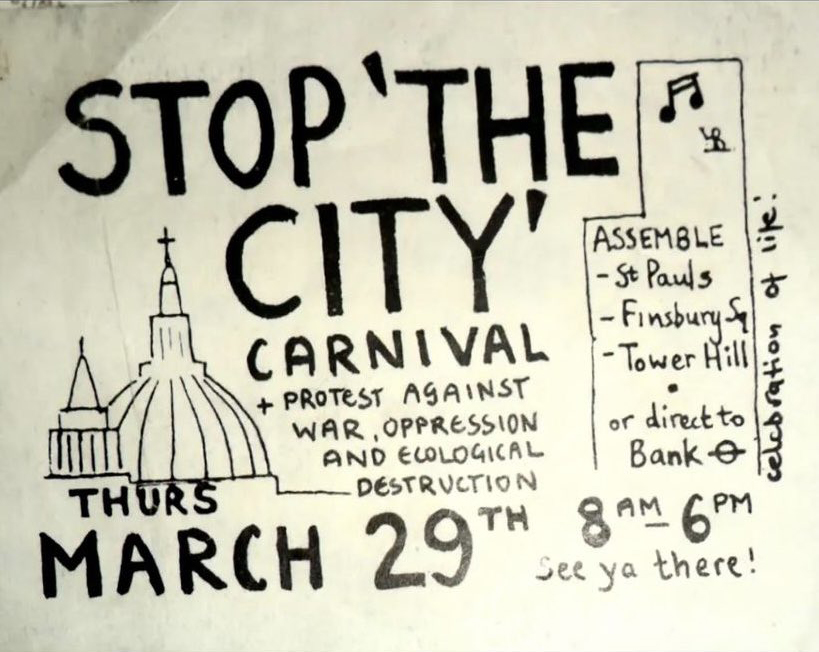 STOP 'THE
CITY'
CARNIVAL
+ PROTEST AGAINST
WAR, OPPRESSION
AND ECOLOGICAL
DESTRUCTION
ASSEMBLE
- St Pauls
- Finsbury Sq
- Tower Hill
•
or direct to
Bank
celebration of life!
THURS
MARCH 29TH
8AM - 6PM
See ya there!